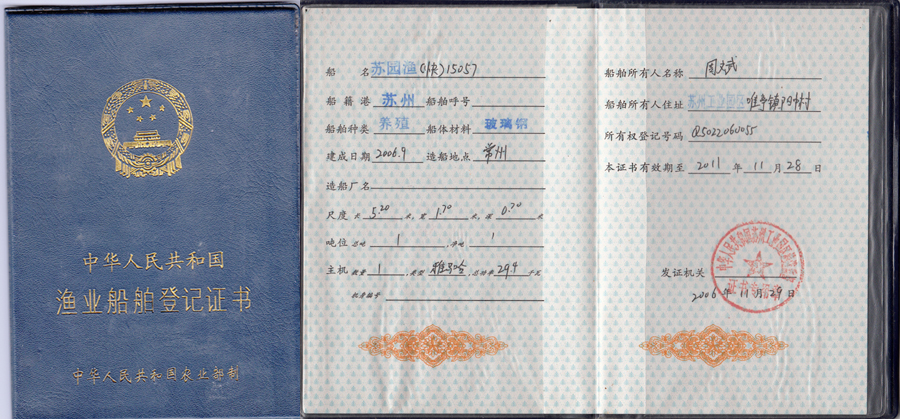 中华人民共和国
渔业船舶登记证书
中华人民共和国农业部制
船 名 苏园渔(快)15057
船籍港 苏州 船舶呼号
船舶种类 养殖 船体材料 玻璃钢
建成日期 2006.9 造船地点 常州
造船厂名
尺度 长 5.20 米, 宽 1.70 米, 深 0.70 米
吨位 总吨 1 , 净吨 1
主机 数量 1 , 类型 雅马哈 , 总功率 29.4 千瓦
船舶所有人名称 周文武
船舶所有人住址 苏州工业园区唯亭镇
所有权登记号码 Q5022060055
本证书有效期至 2011 年 11 月 28 日
发证机关
2006 年 11 月 29 日